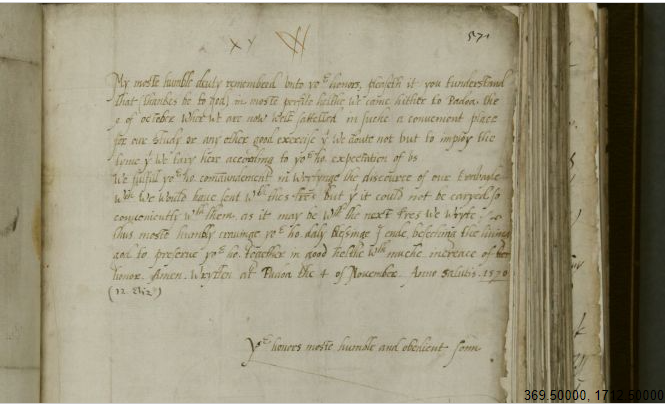 xy
571
My moste humble deuty remembred vnto yor honors, pleaseth it you tunderstand
that thankes be to god, in moste perfite helthe we came hither to Padoa the
of october where we are now well settelled in suche a conuenient place
for our study or any other good exercise yt we doute not but to imploy the
tyme yt we tary here according to yor ho. expectation of vs
We fulfill yor ho. comaundement in wrytynge the discource of our
wch we would haue sent wth thes lrẽs but yt it could not be caryed so
conueniently wth them, as it may be wth the next lrẽs we wryte
thus moste humbly crauinge yor ho. daly blessinge I ende, beseching the liuing
god to preserue yor ho. together in good helthe wth muche increace of
honor. Amen. Wrytten at Padoa the 4 of Nouember. Anno Salutis. 1570
(12 Eliz)
Yor honors moste humble and obedient sonn.
369.50000, 1712.50000